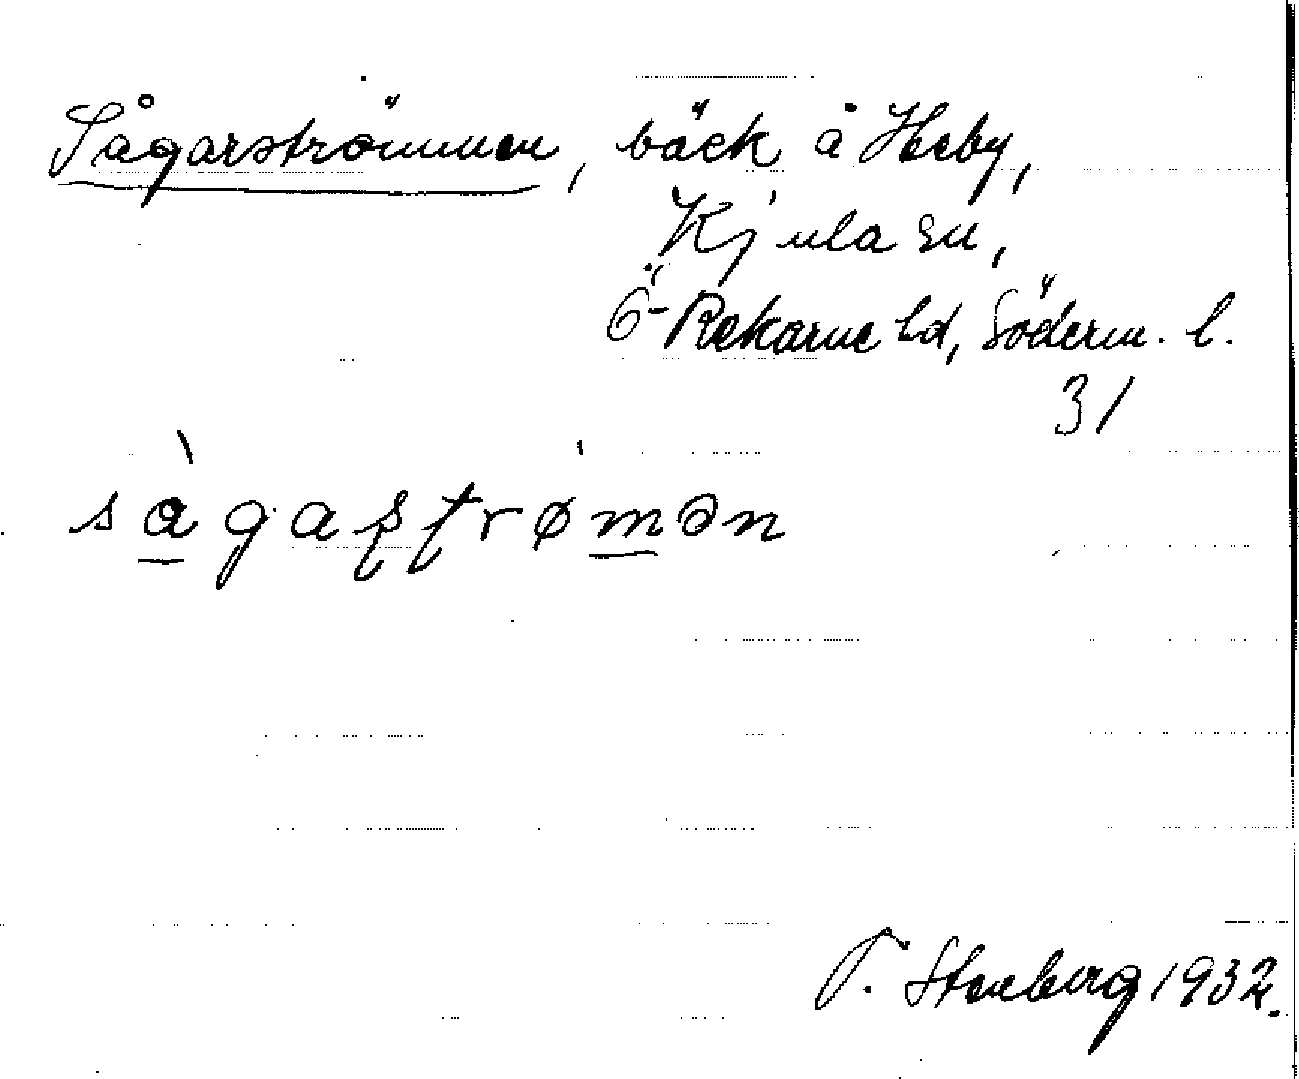 Sågarströmmen, bäck å Heby,
Kjula sn,
Ö-Rekarne hd, Söderm. l.
31
sàgaʂʈrømən
T. Stenberg 1932.